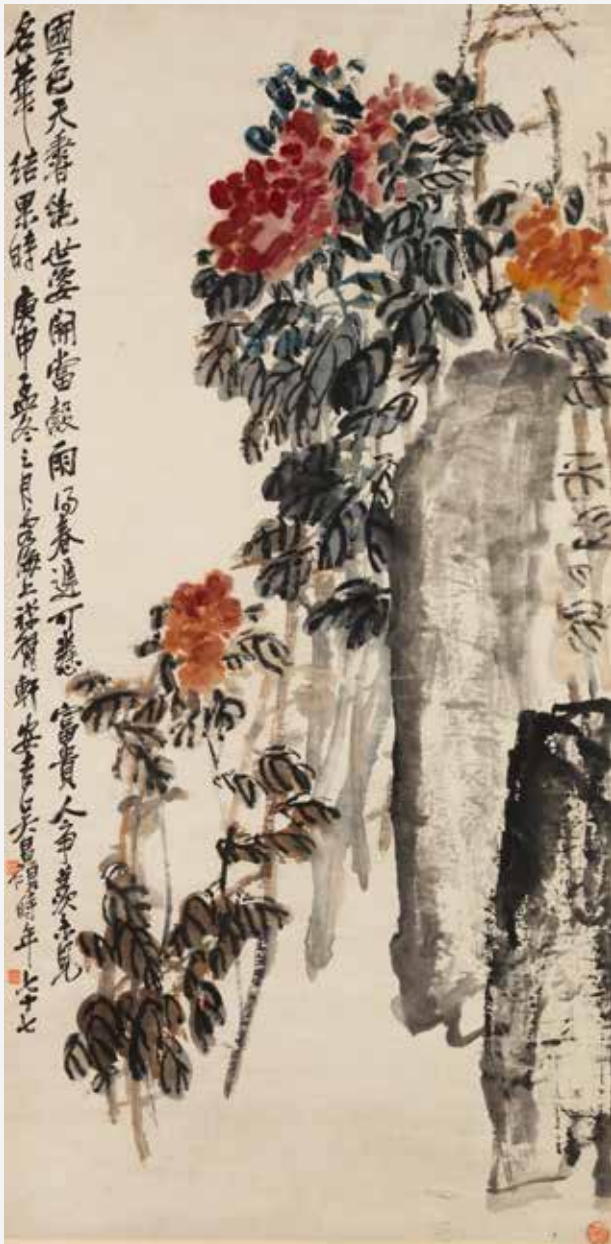 國色天香絕世姿開當穀雨得春遲可愁富貴人爭羨未見
名華結果時庚申孟冬之月客海上禪甓軒安吉吳昌碩時年七十七